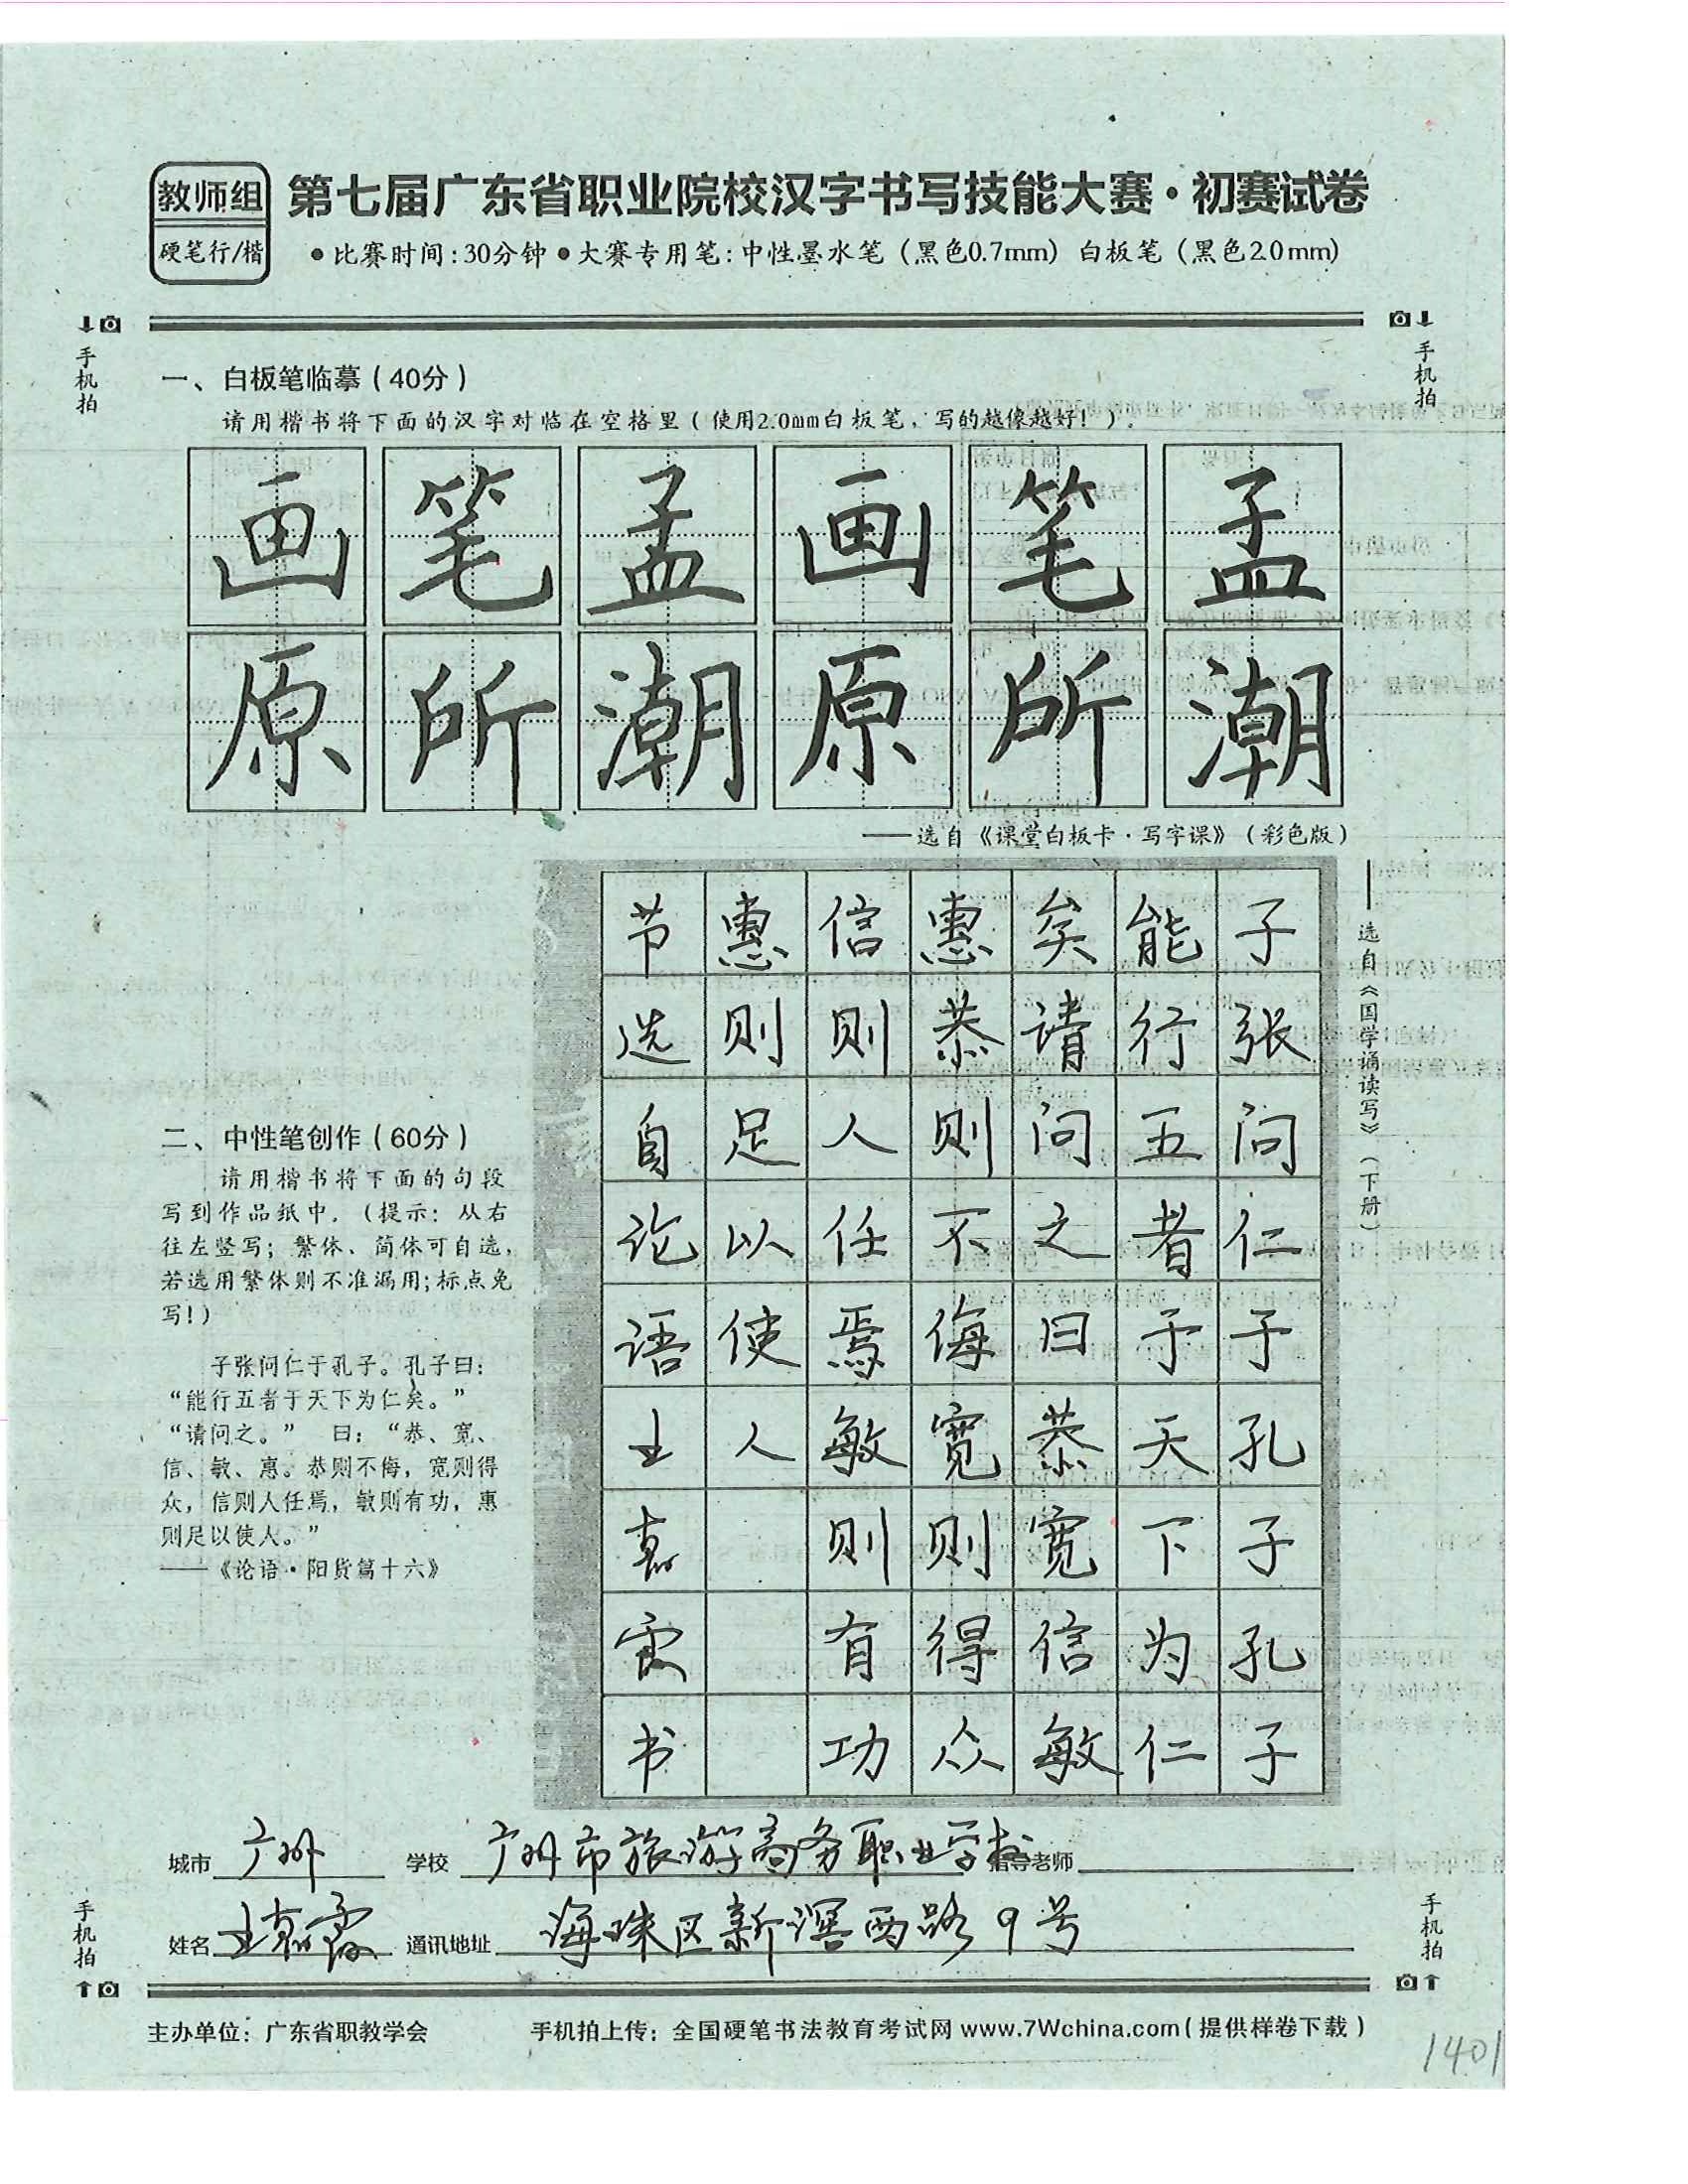 教师组
硬笔行/楷
第七届广东省职业院校汉字书写技能大赛·初赛试卷
●比赛时间:30分钟●大赛专用笔:中性墨水笔(黑色0.7mm) 白板笔(黑色2.0mm)
手机拍
手机拍
一、白板笔临摹(40分)
请用楷书将下面的汉字对临在空格里(使用2.0mm白板笔,写的越像越好!)。
画笔孟画笔孟
原所潮原所潮
——选自《课堂白板卡·写字课》(彩色版)
二、中性笔创作(60分)
请用楷书将下面的句段
写到作品纸中。(提示:从右
往左竖写;繁体、简体可自选,
若选用繁体则不准漏用;标点免
写!)
子张问仁于孔子。孔子曰:
“能行五者于天下为仁矣。”
“请问之。” 曰:“恭、宽、
信、敏、惠。恭则不侮,宽则得
众,信则人任焉,敏则有功,惠
则足以使人。”
——《论语·阳货篇十六》
——选自《国学诵读写》(下册)
子张问仁于孔子孔子
能行五者于天下为仁
矣请问之曰恭宽信敏
惠恭则不侮宽则得众
信则人任焉敏则有功
惠则足以使人
节选自论语王霞书
城市 广州 学校 广州市旅游商务职业学校 指导老师
姓名 王霞 通讯地址 海珠区新滘西路9号
手机拍
手机拍
主办单位:广东省职教学会 手机拍上传:全国硬笔书法教育考试网 www.7Wchina.com(提供样卷下载)
1401